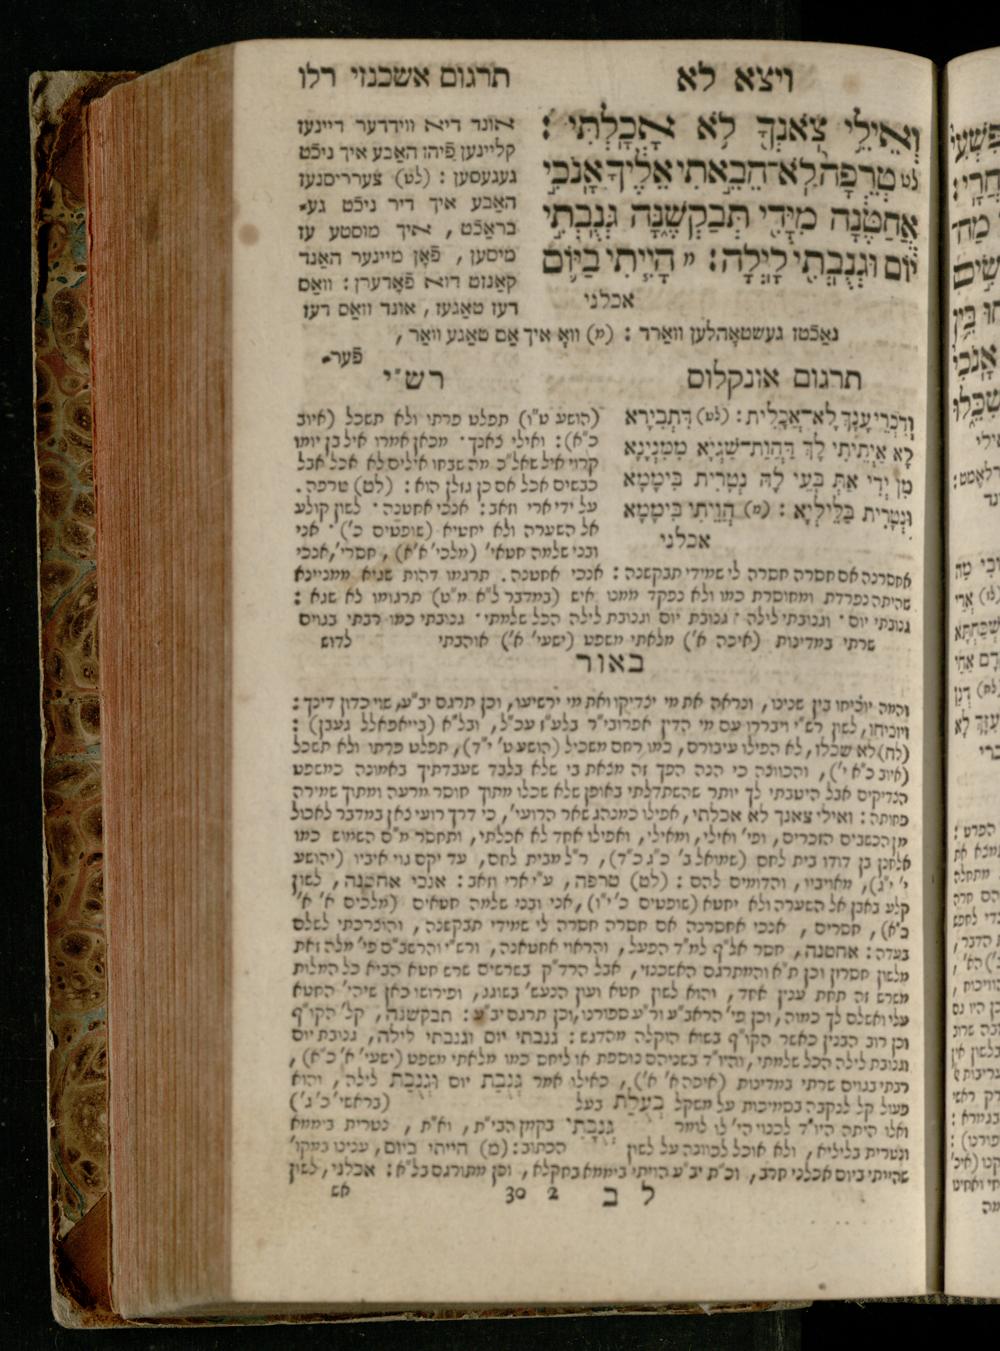 ויצא לא
תרגום אשכנזי רלו
וְאֵילֵי צֹאנְךָ לֹא אָכָלְתִּי :
לט טְרֵפָה לֹא־הֵבֵאתִי אֵלֶיךָ אָנֹכִי
אֲחַטֶּנָּה מִיָּדִי תְּבַקְשֶׁנָּה גְּנֻבְתִי
יוֹם וּגְנֻבְתִי לָיְלָה: מ הָיִיתִי בַיּוֹם
אכלני
אונד דיא ווידדער דיינעז
קליינען פֿיהו האַבע איך ניכֿט
געגעסען : (לט) צערריסנעז
האַבע איך דיר ניכֿט גע־
בראַכֿט , איך מוסטע עז
מיסען , פֿאָן מיינער האַנד
קאַנזט דוא פֿאָרערן : וואַס
דעז טאַגעז , אונד וואַס דעז
נאַכֿטז געשטאָהלען וואַרד : (מ) וואָ איך אַם טאַגע וואַר ,
פֿער־
תרגום אונקלוס
וְדִכְרֵי עָנָךְ לָא־אֲכָלִית : (לט) דִּתְבִירָא
לָא אַיְתֵיתִי לָךְ דַּהֲוַת־שָׁגְיָא מִמִּנְיָנָא
מִן יְדִי אַתְּ בָּעֵי לַהּ נְטָרִית בִּימָמָא
וּנְטָרִית בְּלֵילְיָא : (מ) הֲוֵיתִי בִימָמָא
אכלני
רש״י
(הושע ט״ו) תפלט פרתו ולא תשכל (איוב
כ״א) : ואילי צאנך · מכאן אמרו איל בן יומו
קרוי איל שאל״כ מה שבחו אילים לא אכל אבל
כבשים אכל אם כן גזלן הוא : (לט) טרפה .
על ידי ארי וזאב : אנכי אחטנה · לשון קולע
אל השערה ולא יחטיא (שופטים כ׳) · אני
ובני שלמה חטאי׳ (מלכי׳ א׳א) , חסרי׳, אנכי
אחסרנה אם חסרה חסרה לי שמידי תבקשנה : אנכי אחטנה . תרגומו דהות שגיא ממניינא
שהיתה נפרדת ומחוסרת כמו ולא נפקד ממנו איש (במדבר ל״א מ״ט) תרגומו לא שגא :
גנובתי יום · וגנובתי לילה · גנובת יום וגנובת לילה הכל שלמתי · גנובתי כמו רבתי בגוים
שרתי במדינות (איכה א׳) מלאתי משפט (ישעי׳ א׳) אוהבתי לדוש
באור
והמה יוכיחו בין שנינו , ונראה את מי יצדיקו ואת מי ירשיעו , וכן תרגם יב״ע, שוי כדון דינך :
ויוכיחו , לשון רש״י ויבררו עם מי הדין אפרובי״ר בלע״ז עכ״ל,
(לח) לא שכלו , לא הפילו עיבורם , כמו רחם משכיל (הושע ט׳ י״ד) , תפלט פרתו ולא תשכל
(איוב כ״א י׳) , והכוונה כי הנה הפך זה מצאת בי שלא בלבד שעבדתיך באמונה כמשפט
הצדיקים אבל היטבתי לך יותר שהשתדלתי באופן שלא שכלו מתוך חוסר מרעה ומתוך שמירה
פחותה : ואילי צאנך לא אכלתי , אפילו כמנהג שאר הרועי׳ , כי דרך רועי צאן במדבר לאכול
מן הכשבים הזכרים , ופי׳ ואילי , ומאילי , ואפילו אחד לא אכלתי , ותחסר מ״ם השמוש כמו
אלחנן בן דודו בית לחם (שמואל ב׳ כ״ג כ״ד) , ר״ל מבית לחם , עד יקם גוי איביו (יהושע
י׳ י״ג) , מאויביו , והדומים להם : (לט) טרפה , ע״י ארי וזאב : אנכי אחטנה , לשון
קלע באבן אל השערה ולא יחטא (שופטים כ׳ י״ו) , אני ובני שלמה חטאים (מלכים א׳ א׳
כ״א) , חסרים , אנכי אחסרנה אם חסרה חסרה לי שמידי תבקשנה , והוצרכתי לשלם
בעדה : אחטנה , חסר אל״ף למ״ד הפעל , והראוי אחטאנה , ורש״י והרשב״ם פי׳ מלה זאת
מלשון חסרון וכן ת״א והמתרגם האשכנזי , אבל הרד״ק בשרשים שרש חטא הביא כל המלות
משרש זה תחת ענין אחד , והוא לשון חטא ועון הנעש׳ בשוגג , ופירושו כאן שיהי׳ החטא
עלי ואשלם לך כמוה , וכן פי׳ הראב״ע ור״ע ספורנו, וכן תרגם יב״ע : תבקשנה , קל׳ הקו״ף
וכן רוב הבנין כאשר הקו״ף בשוא הוקלה מהדגש : גנבתי יום וגנבתי לילה , גנובת יום
וגנובת לילה הכל שלמתי , והיו״ד בשניהם נוספת או ליחס כמו מלאתי משפט (ישעי׳ א׳ כ״א) ,
רבתי בגוים שרתי במדינות (איכה א׳ א׳) , כאילו אמר גְּנֻבַת יום וּגְנֻבַת לילה , והוא
פעול קל לנקבה בסמיכות על משקל בְּעֻלַת בעל (בראשי׳ כ׳ ג׳)
ואלו היתה היו״ד לכנוי הי׳ לו לומר גְּנַבְתִּי בקמץ הבי״ת , וא״ת , נטרית ביממא
ונטרית בליליא , ולא אוכל לכוונה על לשון הכתוב : (מ) הייתי ביום , ענינו במקו׳
שהייתי ביום אכלני חרב , וכ״ת יב״ע הויתי ביממא בחקלא , וכן מתורגם בל״א : אכלני , לשון
ל ב 2 30 אש